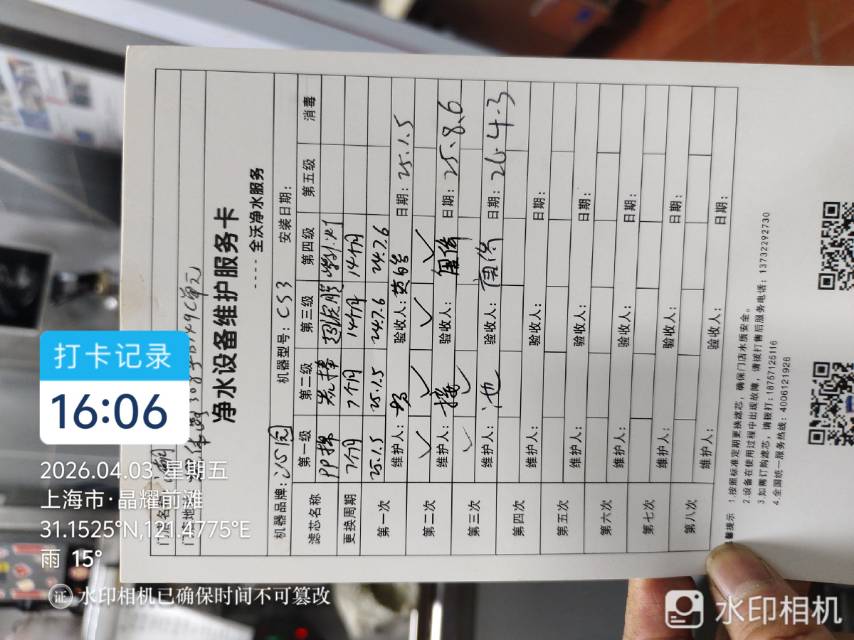 净水设备维护服务卡
---- 全沃净水服务
机器品牌: 机器型号: CS3 安装日期:
滤芯名称 第一级 第二级 第三级 第四级 第五级 消毒
PP棉
更换周期 7个月 7个月 14个月 14个月
第一次 25.1.5 25.1.5 24.7.6 24.7.6
维护人: 验收人: 日期: 25.1.5
第二次 ✓ ✓ ✓ ✓
维护人: 验收人: 日期: 25.8.6
第三次 ✓
维护人: 池 验收人: 日期: 26.4.3
第四次
维护人: 验收人: 日期:
第五次
维护人: 验收人: 日期:
第六次
维护人: 验收人: 日期:
第七次
维护人: 验收人: 日期:
第八次
维护人: 验收人: 日期:
馨提示 1.按照标准定期更换滤芯，确保门店水质安全。
2.设备在使用过程中出现故障，请拨打售后服务电话: 13732292730
3.如需订购滤芯，请拨打: 18757125116
4.全国统一服务热线: 4006121926
打卡记录
16:06
2026.04.03 星期五
上海市·晶耀前滩
31.1525°N,121.4775°E
雨 15°
证 水印相机已确保时间不可篡改
水印相机